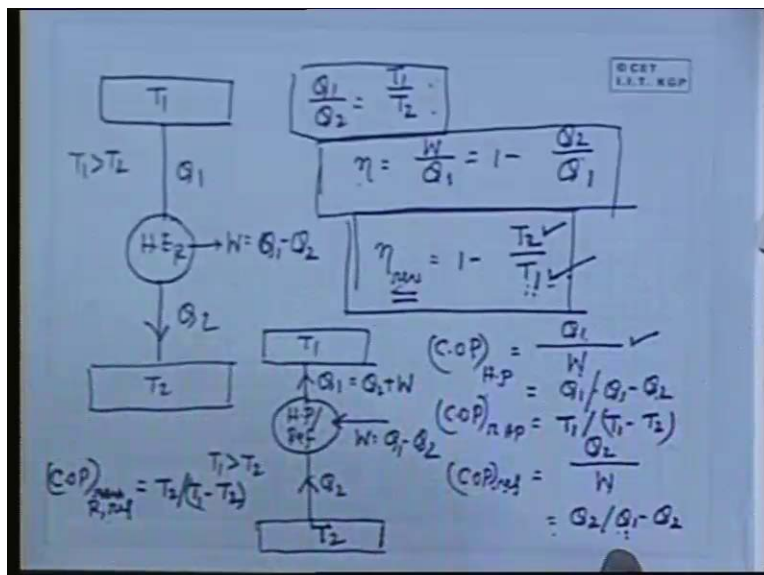 © CET
I.I.T. KGP
T₁
T₁ > T₂
Q₁
H.E_R → W = Q₁ - Q₂
Q₂
T₂
Q₁/Q₂ = T₁/T₂
η = W/Q₁ = 1 - Q₂/Q₁
η_rev = 1 - T₂/T₁
T₁
Q₁ = Q₂ + W
H.P/Ref
W = Q₁ - Q₂
T₁ > T₂
Q₂
T₂
(COP)_R,ref = T₂/(T₁ - T₂)
(C.O.P)_H.P = Q₁/W
= Q₁/Q₁ - Q₂
(COP)_R HP = T₁/(T₁ - T₂)
(COP)_ref = Q₂/W
= Q₂/Q₁ - Q₂